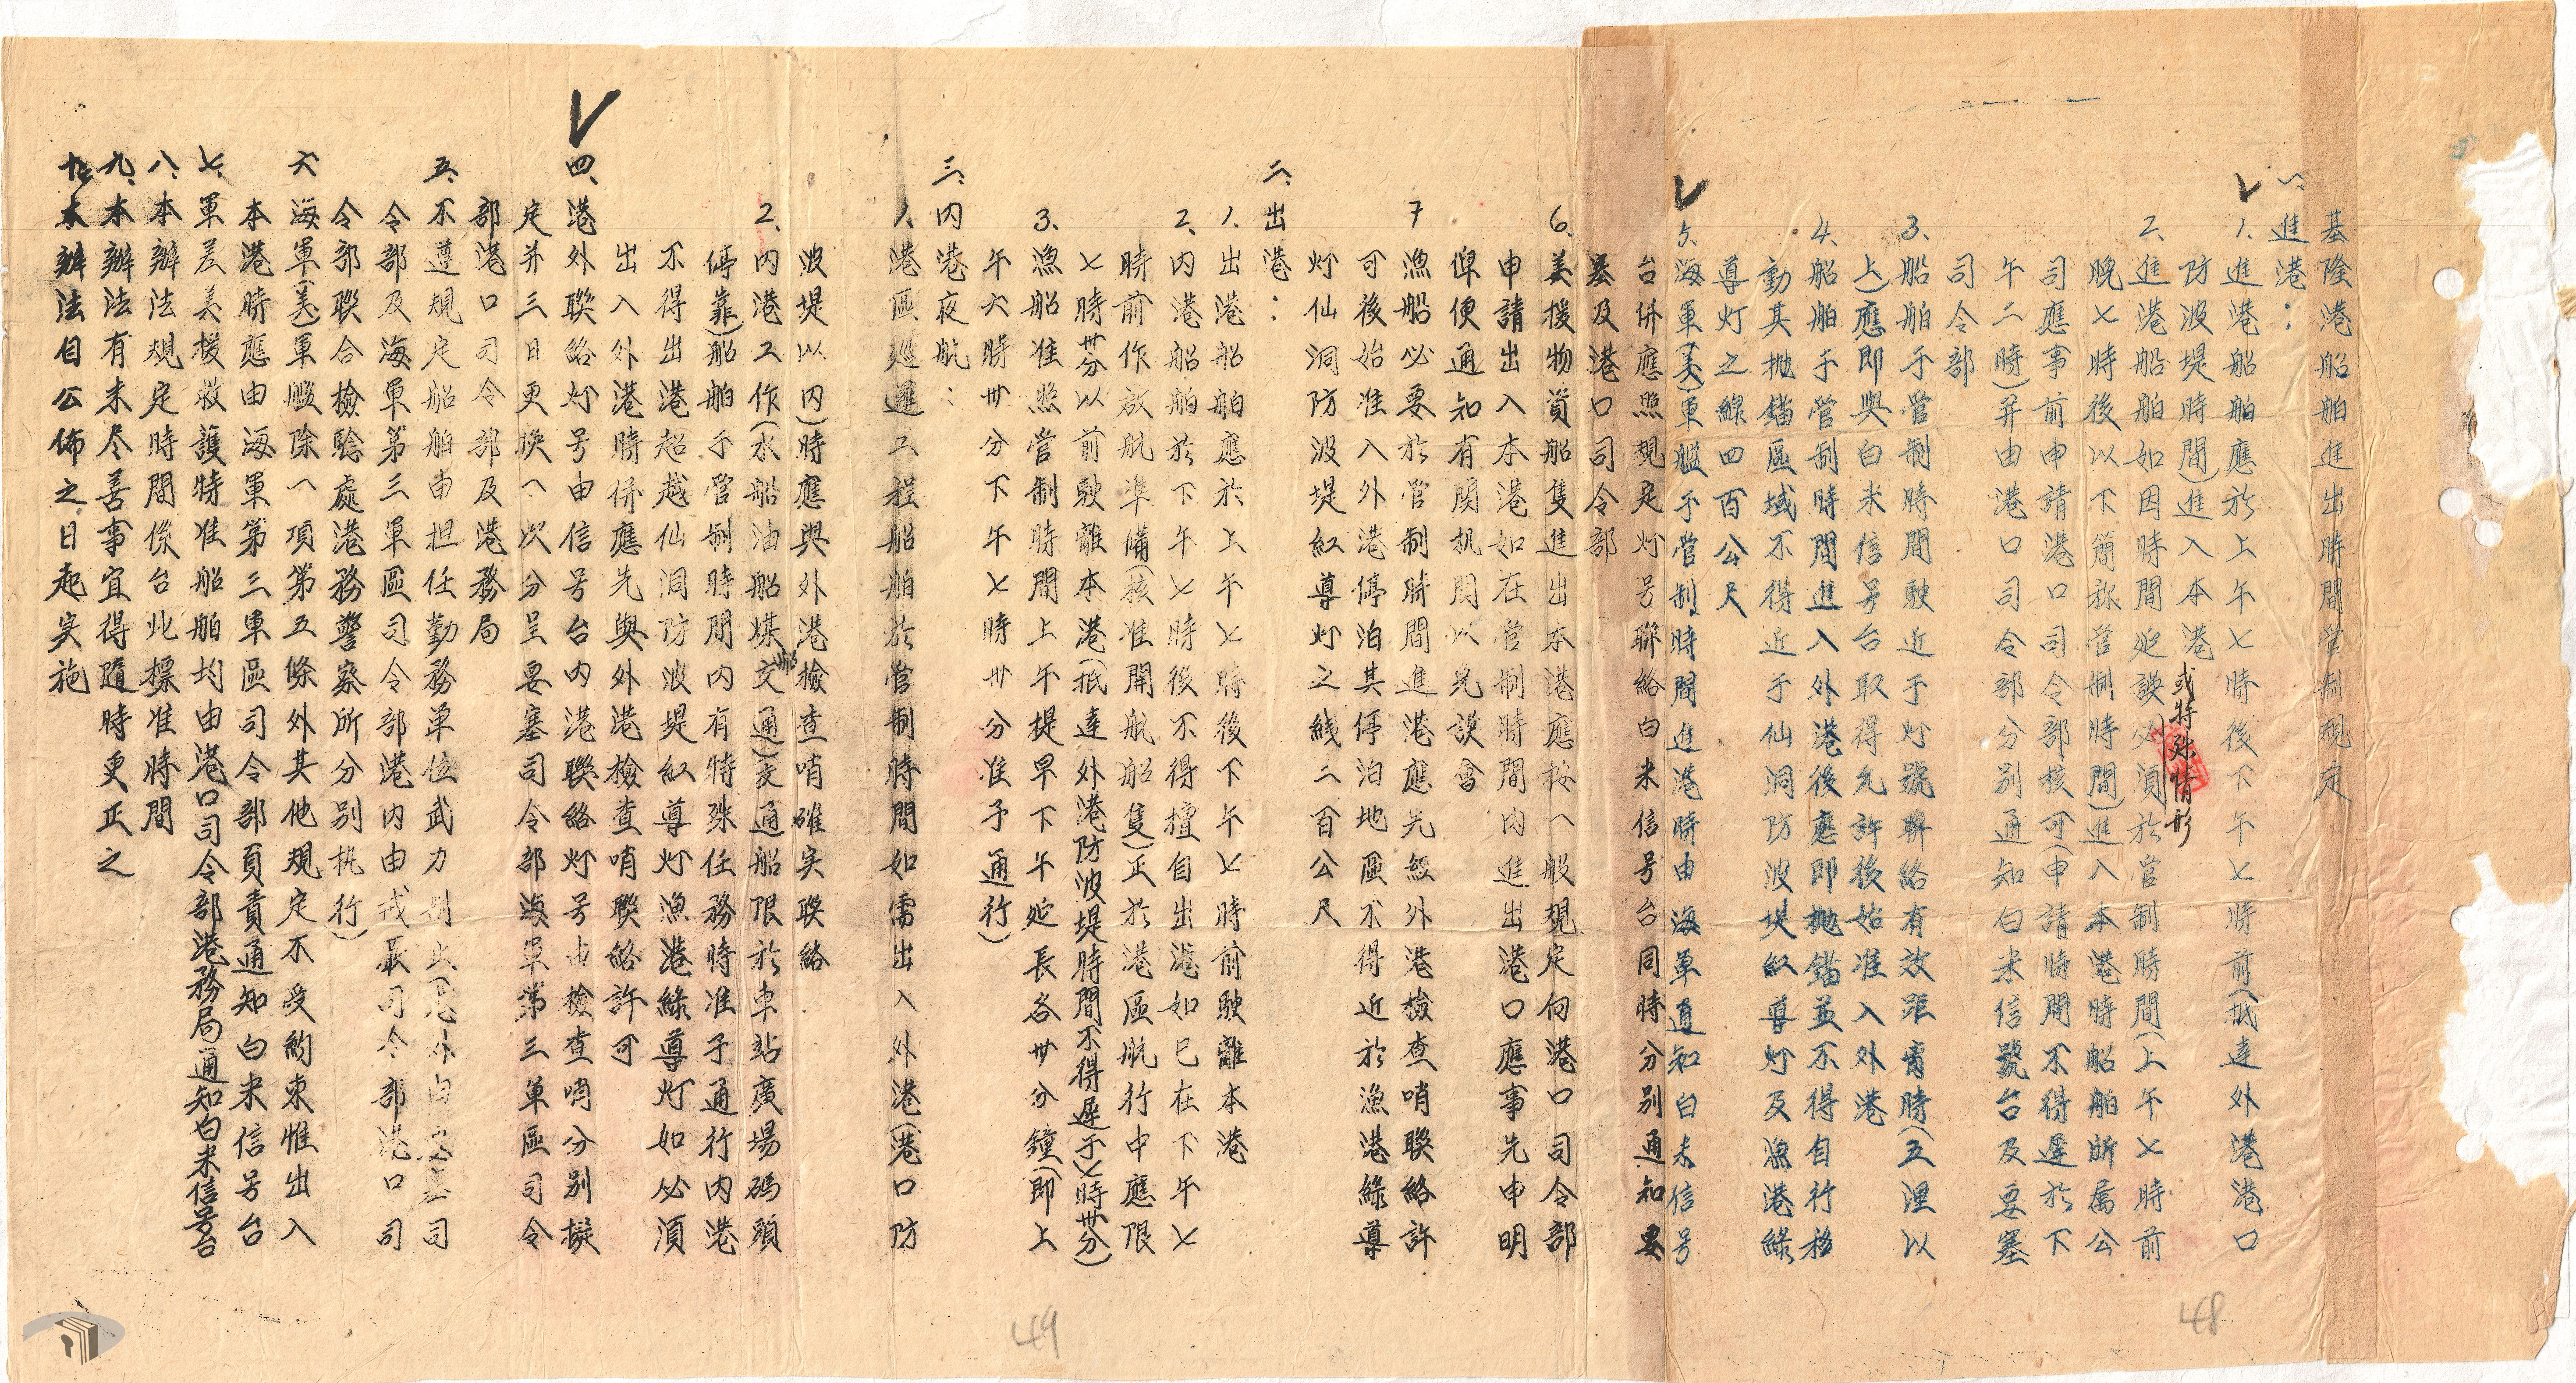 基隆港船舶進出時間管制規定
一、進港：
1.進港船舶應於上午七時後下午七時前(抵達外港港口
防波堤時間)進入本港
2.進港船舶如因時間延誤或特殊情形必須於管制時間(上午七時前
晚七時後以下簡称管制時間)進入本港時船舶所属公
司應事前申請港口司令部核可(申請時間不得遲於下
午二時)并由港口司令部分別通知白米信號台及要塞
司令部
3.船舶于管制時間駛近于灯號聯絡有效距離時(五浬以
上)應即與白米信号台取得允許後始准入外港
4.船舶于管制時間進入外港後應即抛錨並不得自行移
動其抛錨區域不得近于仙洞防波堤紅導灯及漁港綠
導灯之線四百公尺
5.海軍(美)軍艦于管制時間進港時由海軍通知白米信号
台併應照規定灯号聯絡白米信号台同時分別通知要
塞及港口司令部
6.美援物資船隻進出本港應按一般規定向港口司令部
申請出入本港如在管制時間內進出港口應事先申明
俾便通知有関机関以免誤會
7漁船必要於管制時間進港應先經外港檢查哨聯絡許
可後始准入外港停泊其停泊地區不得近於漁港綠導
灯仙洞防波堤紅導灯之綫二百公尺
二、出港：
1.出港船舶應於上午七時後下午七時前駛離本港
2.內港船舶於下午七時後不得擅自出港如已在下午七
時前作啟航準備(核准開航船隻)正於港區航行中應限
七時卅分以前駛離本港(抵達外港防波堤時間不得遲于七時卅分)
3.漁船准照管制時間上午提早下午延長各卅分鐘(即上
午六時卅分下午七時卅分准予通行)
三、內港夜航：
1.港區巡邏工程船舶於管制時間如需出入外港(港口防
波堤以內)時應與外港檢查哨確实联絡
2.內港工作(水船油船煤船交通)交通船限於車站廣場碼頭
停靠)船舶于管制時間內有特殊任務時准予通行內港
不得出港超越仙洞防波堤紅導灯漁港綠導灯如必須
出入外港時併應先與外港檢查哨聯絡許可
四、港外联絡灯号由信号台內港聯絡灯号由檢查哨分別擬
定并三日更換一次分呈要塞司令部海軍第三軍區司令
部港口司令部及港務局
五、不遵規定船舶由担任勤務單位武力制止(港外由要塞司
令部及海軍第三軍區司令部港內由戒嚴司令部港口司
令部联合檢驗處港務警察所分別執行)
六海軍(美)軍艦除一項第五條外其他規定不受約束惟出入
本港時應由海軍第三軍區司令部負責通知白米信号台
七、軍差美援救護特准船舶均由港口司令部港務局通知白米信号台
八、本辦法規定時間係台北標准時間
九、本辦法有未尽善事宜得隨時更正之
十、本辦法自公佈之日起实施
49
48